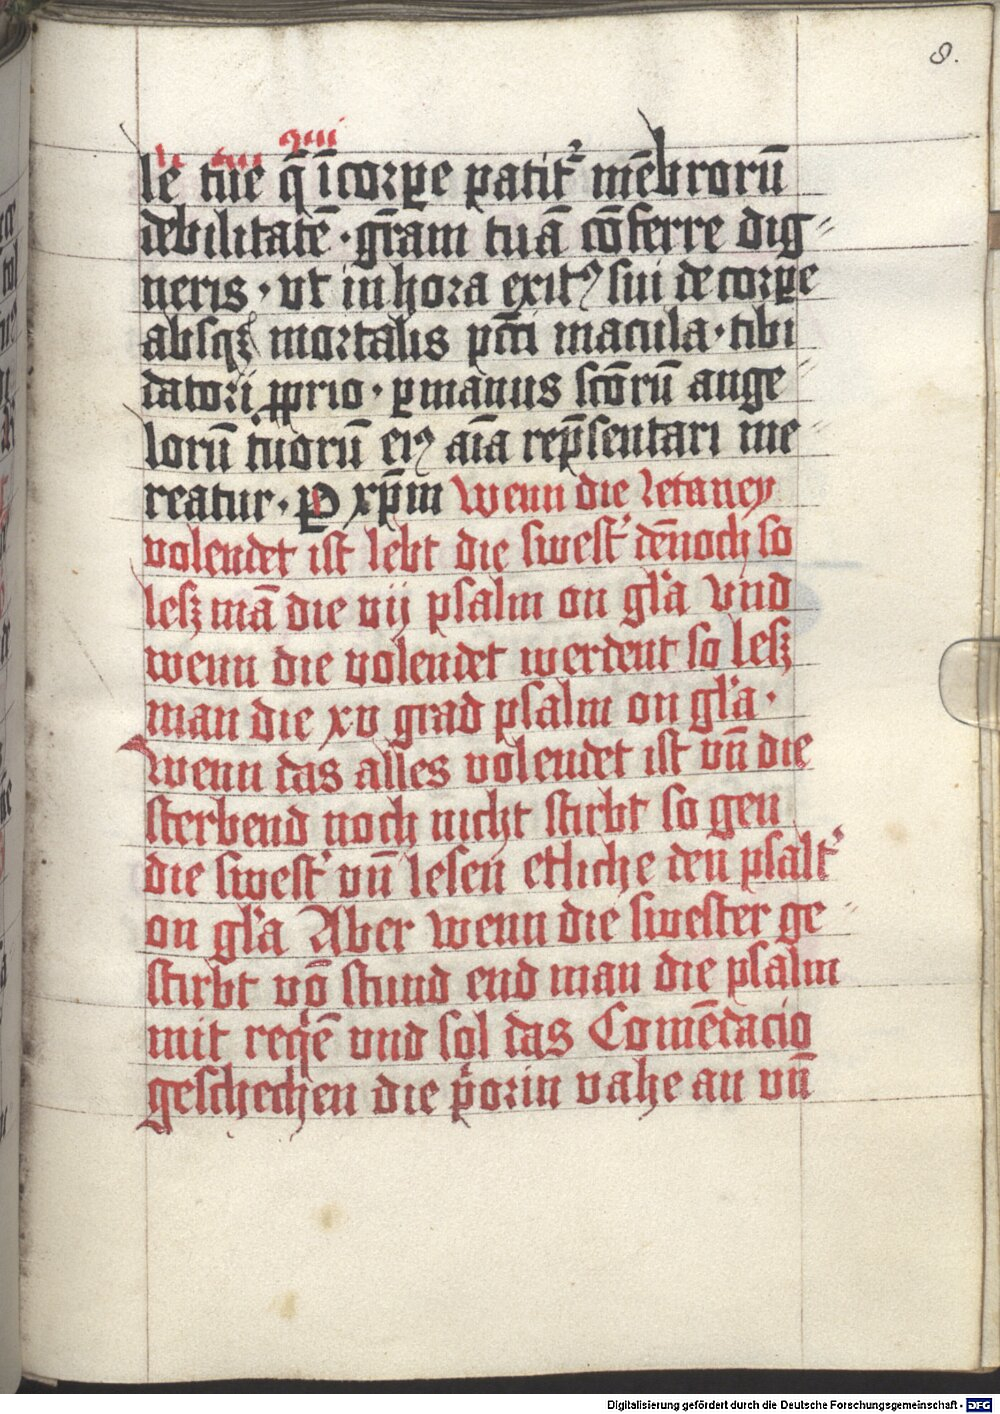 8.
li tui qui
le tue q̄ ī corꝑe patit᷑ mēbrorū
debilitatē · gr̄am tuā cōferre dig⸗
neris · vt in hora exitꝰ sui de corꝑe
absqꝫ mortalis pctī macula · tibi
datori ꝓprio · ꝑ manus sctōrū ange⸗
lorū tuorū eiꝰ aīa rep̄sentari me⸗
reatur · P xp̄m Wenn die letaney
volendet ist lebt die swest᷑ dēnoch so
lesꝫ mā die vij psalm on gl᷑a Vnd
wenn die volendet werdent so lesꝫ
man die xv grad psalm on gl᷑a ·
Wenn das alles volendet ist vn̄ die
sterbend noch nicht stirbt so gen
die swest᷑ vn̄ lesen etliche den psalt᷑
on gl᷑a Aber wenn die swester ge⸗
stirbt vō stund end man die psalm
mit reqē vnd sol das Comēdacio
geschechen die p᷑orin vahe an vn̄
Digitalisierung gefördert durch die Deutsche Forschungsgemeinschaft - DFG